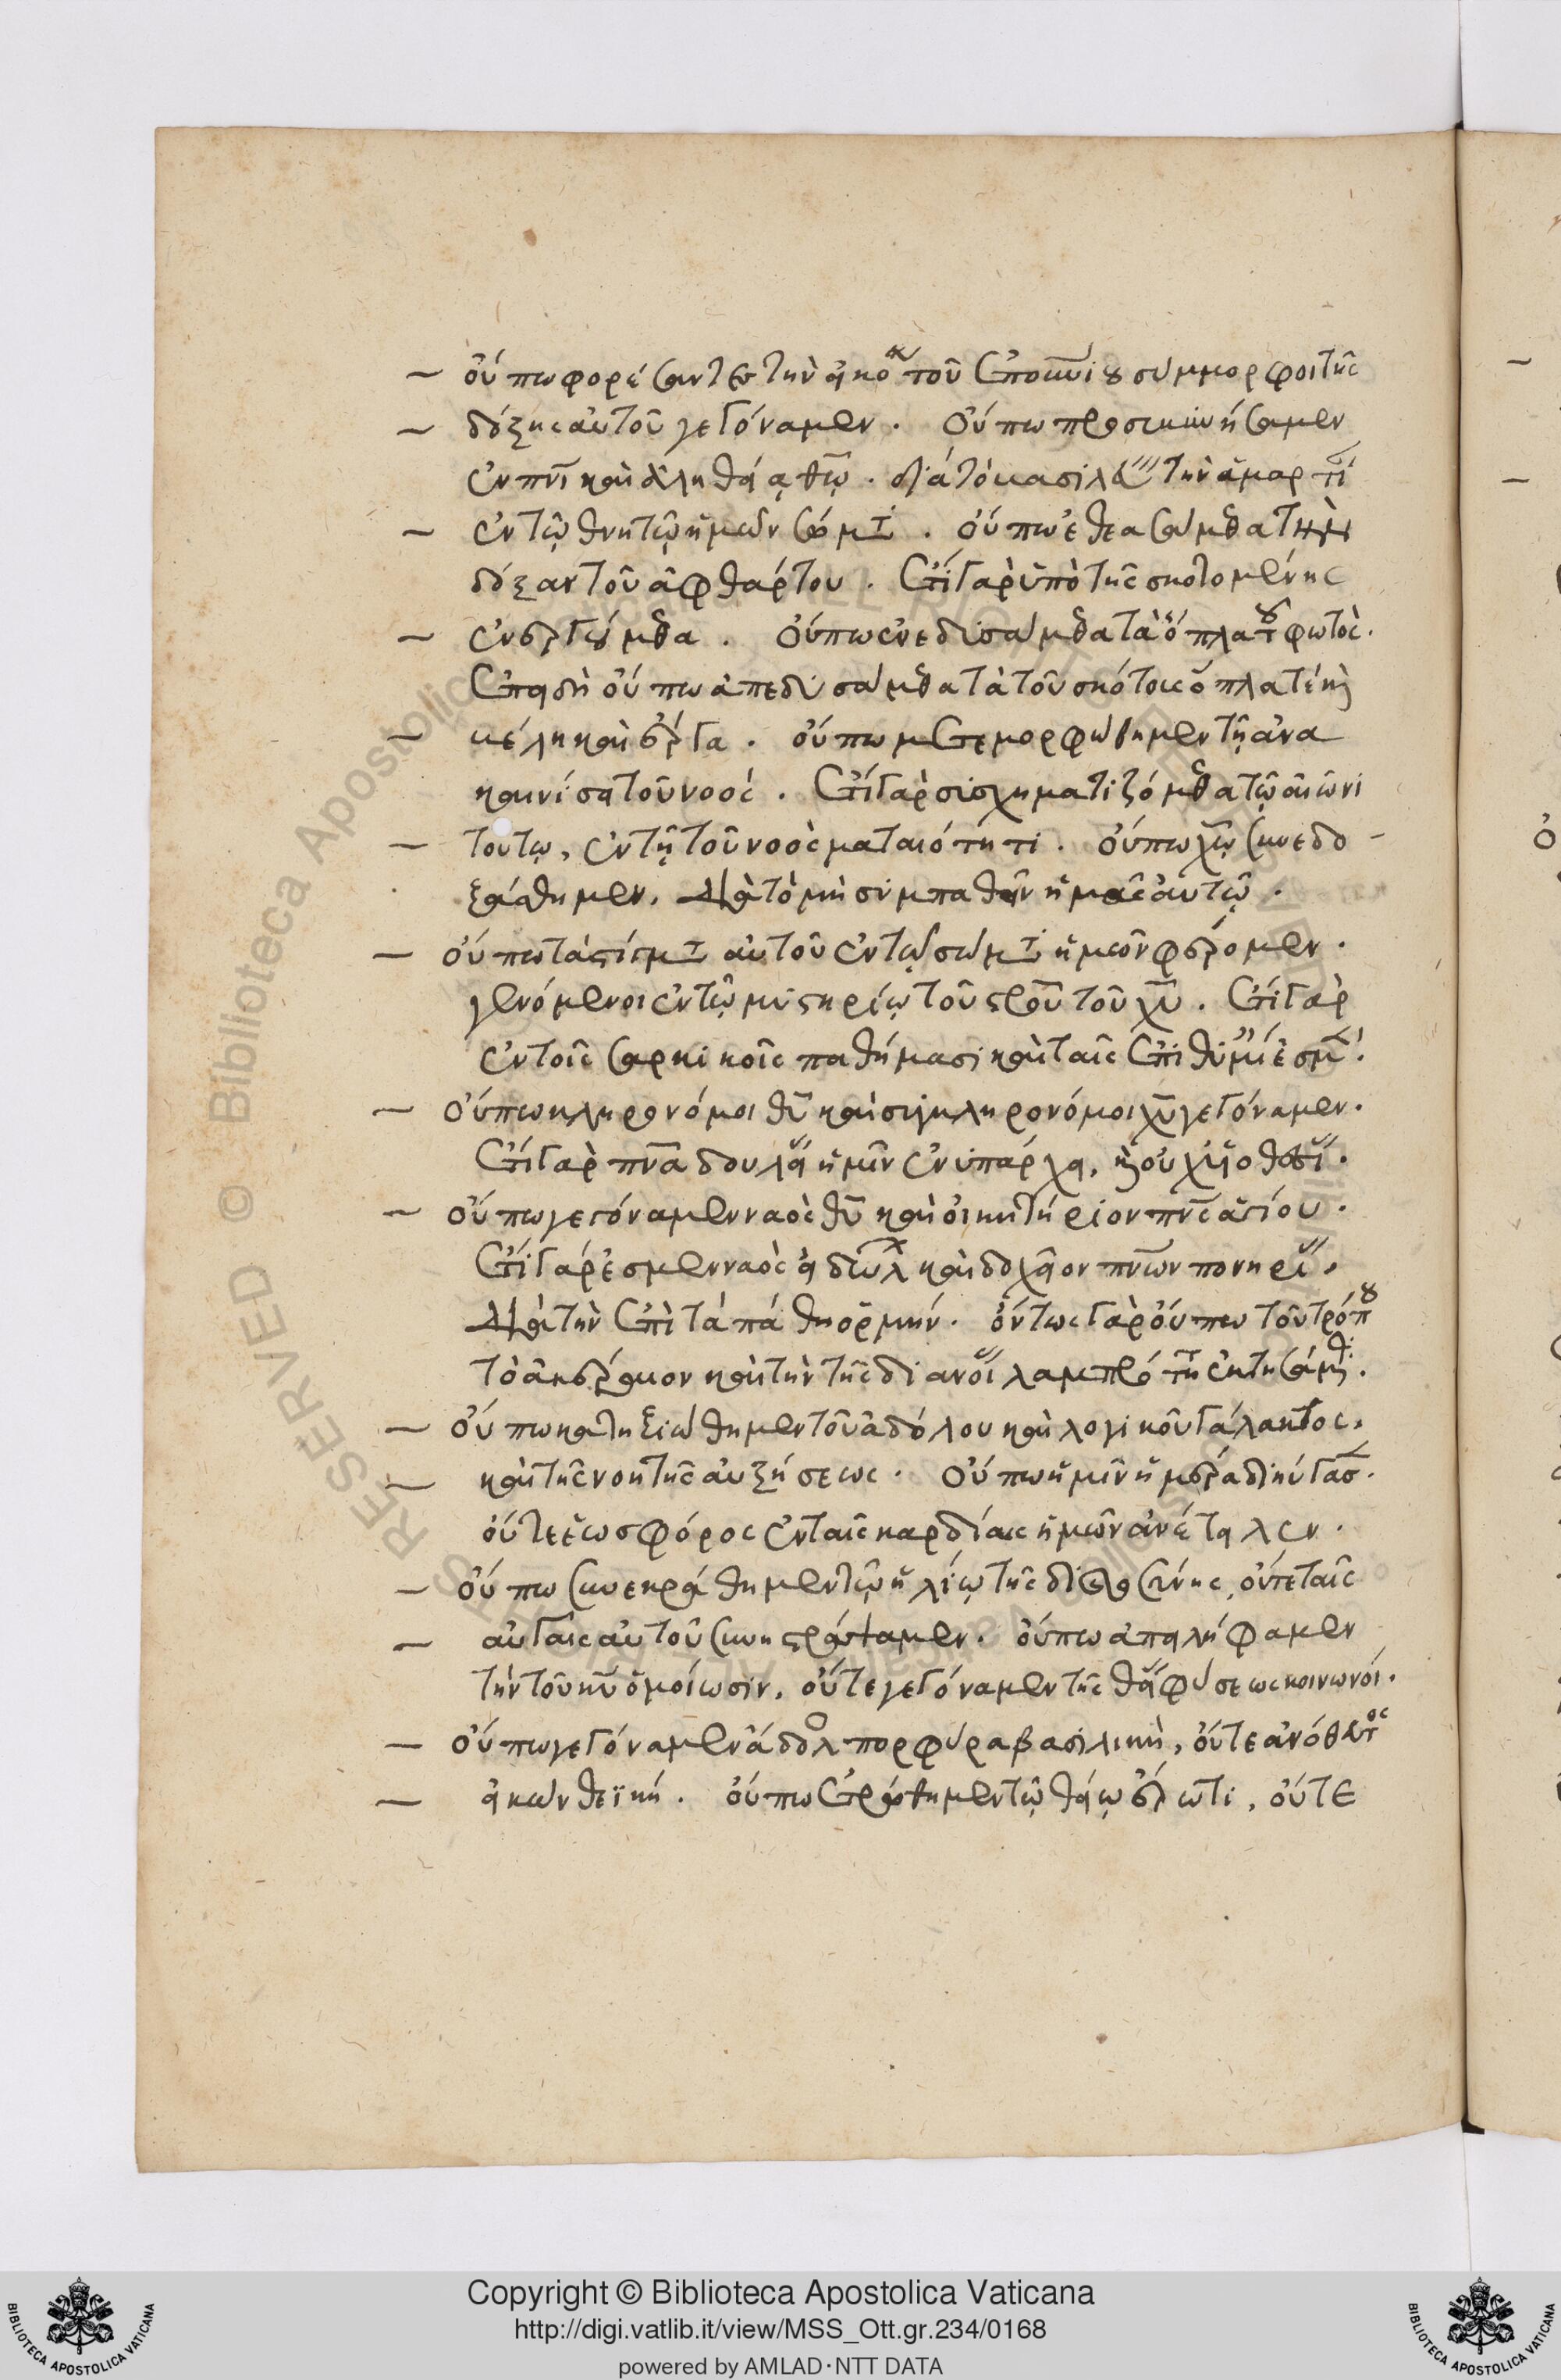 οὔπω φορέσαντες τὴν εἰκό τοῦ ἐπουνίου σύμμορφοι τῆς
δόξης αὐτοῦ γεγόναμεν. οὔπω προσεκυνήσαμεν
ἐν πνι καὶ ἀληθείᾳ θῶ. διὰ τὸ βασιλεύειν τὴν ἁμαρτί
ἐν τῷ θνητῷ ἡμῶν σώμτι. οὔπω ἐθεασάμεθα τὴν
δόξαν τοῦ ἀφθάρτου. ἔτι γὰρ ὑπὸ τῆς σκοτομένης
ἐνεργούμεθα. οὔπω ἐνεδυσάμεθα τὰ ὅπλα τοῦ φωτός.
ἐπειδὴ οὔπω ἀπεδυσάμεθα τὰ τοῦ σκότους ὅπλα τέ καὶ
βέλη καὶ ἔργα. οὔπω μετεμορφώθημεν τῇ ἀνα
καινίσει τοῦ νοός. ἔτι γὰρ συσχηματιζόμεθα τῷ αἰῶνι
τούτῳ, ἐν τῇ τοῦ νοὸς ματαιότητι. οὔπω χῶ συνεδο
ξάσθημεν, διὰ τὸ μὴ συμπαθεῖν ἡμᾶς αὐτῷ.
οὔπω τὰ στίγμτ αὐτοῦ ἐν τῷ σώμτι ἡμῶν φέρομεν.
γενόμενοι ἐν τῷ μυστηρίῳ τοῦ σροῦ τοῦ χυ. ἔτι γὰρ
ἐν τοῖς σαρκικοῖς παθήμασι καὶ ταῖς ἐπιθυμί ἐσμέν.
οὔπω κληρονόμοι θυ καὶ συγκληρονόμοι χυ γεγόναμεν.
ἔτι γὰρ πνα δουλεί ἡμῖν ἐνυπάρχει, καὶ οὐχ υἱοθεσί.
οὔπω γεγόναμεν ναὸς θυ καὶ οἰκητήριον πνς ἁγίου.
ἔτι γάρ ἐσμεν ναὸς εἰδώλ καὶ δοχεῖον πνων πονηρῶ,
διὰ τὴν ἐπὶ τὰ πάθη ὁρμήν. ὄντως γὰρ οὔπω τοῦ τρόπου
τὸ ἀκέραιον καὶ τὴν τῆς διανοί λαμπρότη ἐκτησάμεθα.
οὔπω κατηξιώθημεν τοῦ ἀδόλου καὶ λογικοῦ γάλακτος,
καὶ τῆς νοητῆς αὐξήσεως. οὔπω ἡμῖν ἡμέρα διηύγασ.
οὔτε ἑωσφόρος ἐν ταῖς καρδίαις ἡμῶν ἀνέτειλεν.
οὔπω συνεκράθημεν τῷ ἡλίῳ τῆς δικαιοσύνης, οὔτε ταῖς
αὐγαῖς αὐτοῦ συνηστράψαμεν. οὔπω ἀπειλήφαμεν
τὴν τοῦ κυ ὁμοίωσιν, οὔτε γεγόναμεν τῆς θεί φύσεως κοινωνοί.
οὔπω γεγόναμεν ἄδολ πορφύρα βασιλικὴ, οὔτε ἀνόθευτος
εἰκὼν θεϊκή. οὔπω ἐτρώθημεν τῷ θείῳ ἔρωτι, οὔτε
Copyright © Biblioteca Apostolica Vaticana
http://digi.vatlib.it/view/MSS_Ott.gr.234/0168
powered by AMLAD·NTT DATA